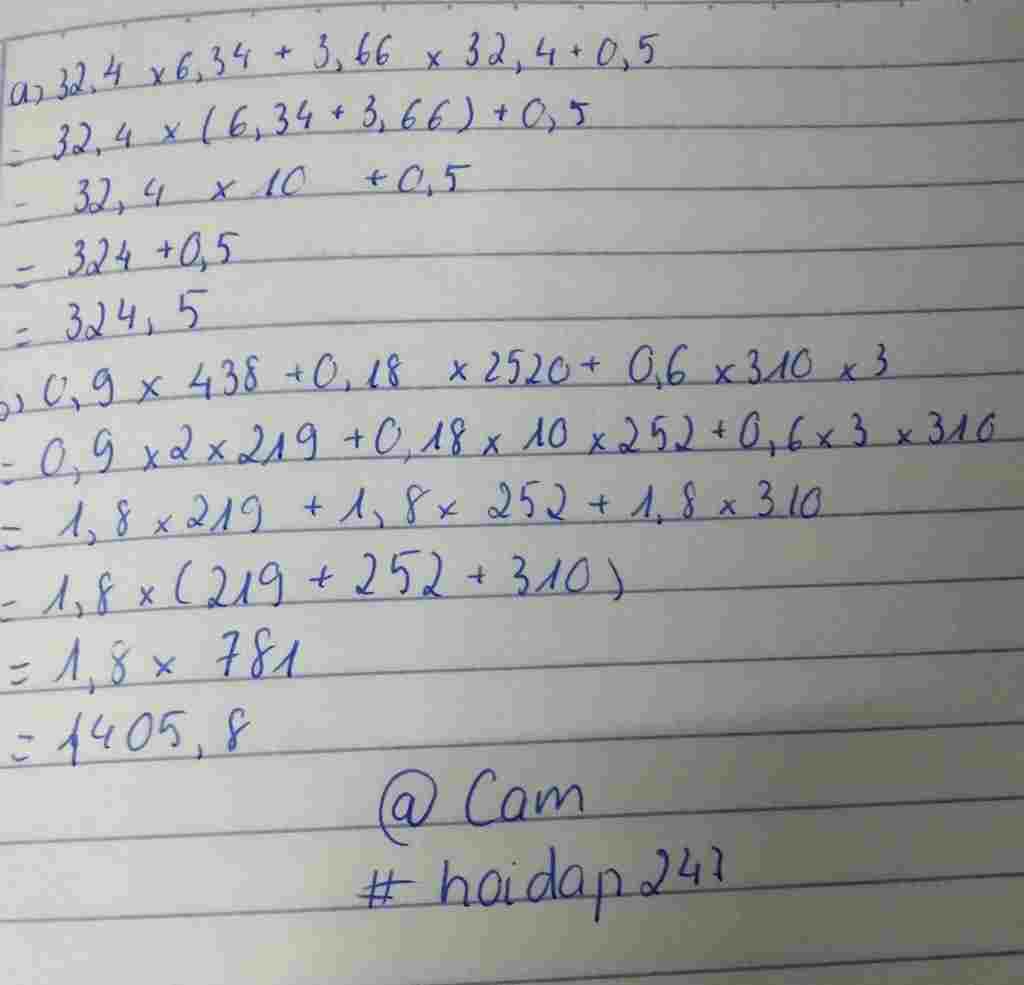 a, 32,4 × 6,34 + 3,66 × 32,4 + 0,5
= 32,4 × (6,34 + 3,66) + 0,5
= 32,4 × 10 + 0,5
= 324 + 0,5
= 324,5
b, 0,9 × 438 + 0,18 × 2520 + 0,6 × 310 × 3
= 0,9 × 2 × 219 + 0,18 × 10 × 252 + 0,6 × 3 × 310
= 1,8 × 219 + 1,8 × 252 + 1,8 × 310
= 1,8 × (219 + 252 + 310)
= 1,8 × 781
= 1405,8
@ Cam
# hoidap247